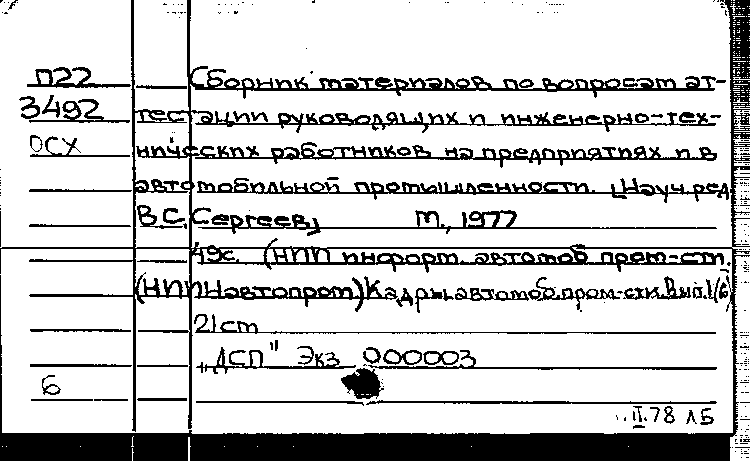 П22 Сборник материалов по вопросам ат-
3492 тестации руководящих и инженерно-тех-
ОСХ нических работников на предприятиях и в
автомобильной промышленности. [Науч. ред.
В.С. Сергеев]
М., 1977
49с. (НИИ информ. автомоб пром-сти.
(НИИНавтопром) Кадры автомоб. пром-сти. Вып. 1(6)
21см
"ДСП" Экз 000003
6
II.78 ЛБ